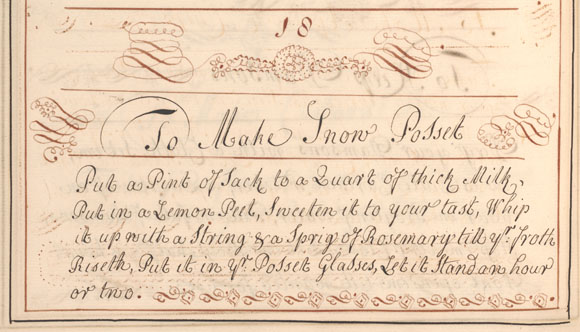 18
To Make Snow Posset
Put a Pint of Sack to a Quart of thick Milk,
Put in a Lemon Peel, Sweeten it to your tast, Whip
it up with a String & a Sprig of Rosemary till yr. Froth
Riseth, Put it in yr. Posset Glasses, Let it Stand an hour
or two.